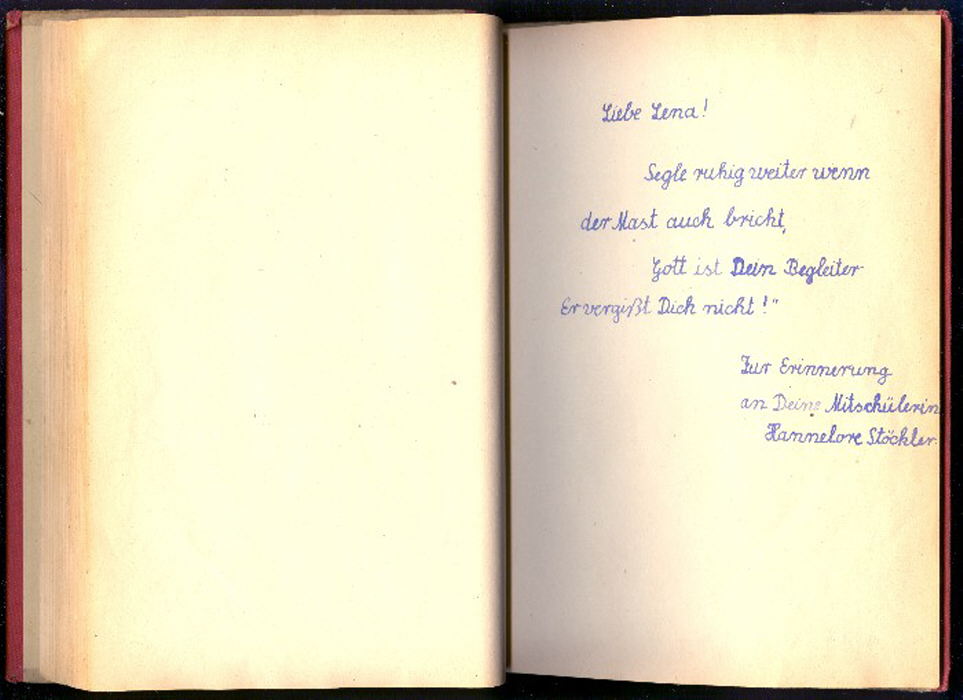 Liebe Lena!
Segle ruhig weiter wenn
der Mast auch bricht,
Gott ist Dein Begleiter
Er vergißt Dich nicht!"
Zur Erinnerung
an Deine Mitschülerin
Hannelore Stöckler.